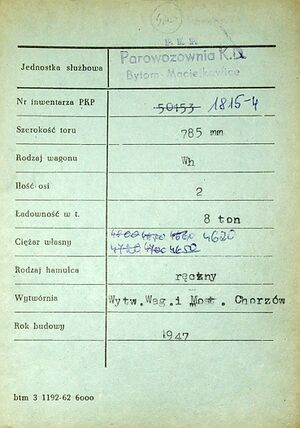 P K P
Jednostka służbowa Parowozownia K.D.
Bytom-Maciejkowice
Nr inwentarza PKP 50153 1815-4
Szerokość toru 785 mm
Rodzaj wagonu Wh
Ilość osi 2
Ładowność w t. 8 ton
Ciężar własny 4620
4650
Rodzaj hamulca ręczny
Wytwórnia Wytw.Wag.i Most. Chorzów
Rok budowy 1947
btm 3 1192-62 6000